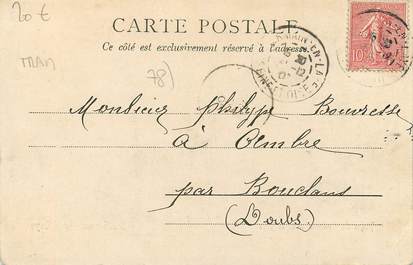 20 €
TRAM
78)
CARTE POSTALE
Ce côté est exclusivement réservé à l'adresse.
10
Monsieur Philype Bouvresse
à Ombre
par Bouclans
(Doubs)